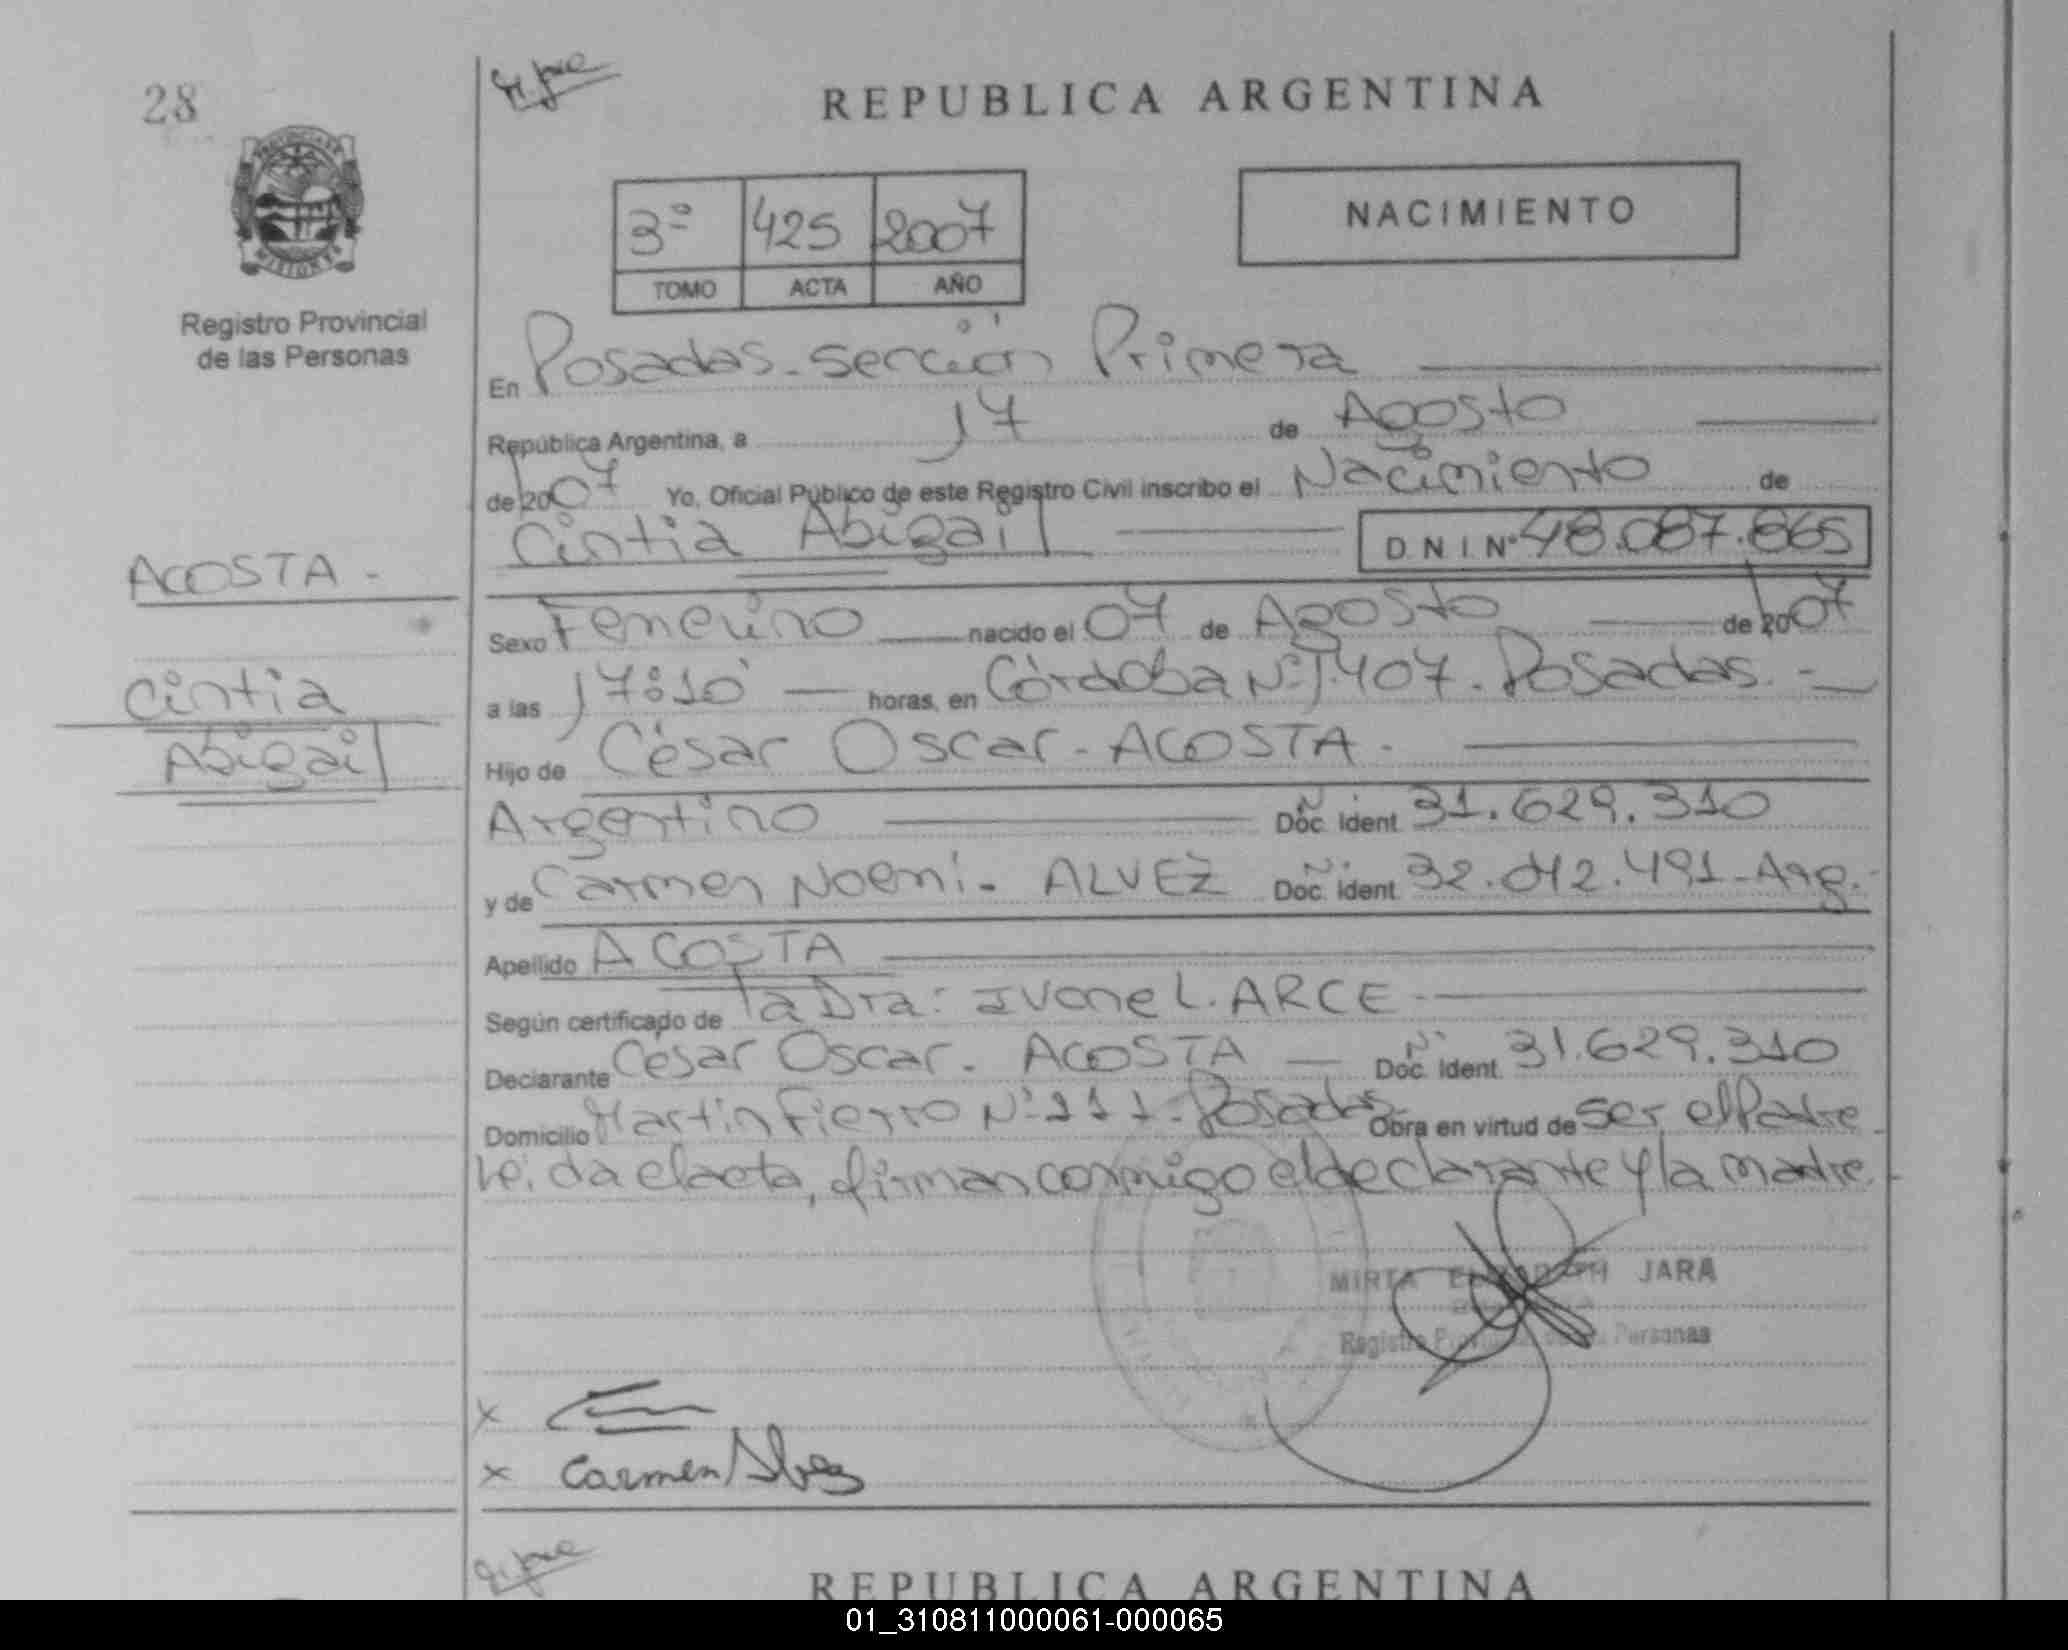 28
REPUBLICA ARGENTINA
PROVINCIA DE
MISIONES
Registro Provincial
de las Personas
3º 425 2007
TOMO ACTA AÑO
NACIMIENTO
En Posadas - sección Primera
República Argentina, a 17 de Agosto
de 2007 Yo, Oficial Público de este Registro Civil inscribo el Nacimiento de
Cintia Abigail D N I. Nº 48.087.865
ACOSTA -
Cintia
Abigail
Sexo Femenino nacido el 07 de Agosto de 2007
a las 17:10 horas, en Córdoba Nº 1407. Posadas. -
Hijo de César Oscar - ACOSTA -
Argentino Doc. Ident. Nº 31.629.310
y de Carmen Noemí - ALVEZ Doc. Ident. Nº 32.042.491 - Arg. -
Apellido ACOSTA
Según certificado de la Dra: Ivone L. ARCE -
Declarante César Oscar - ACOSTA — Doc. Ident. Nº 31.629.310
Domicilio Martín Fierro Nº 111 - Posadas Obra en virtud de ser el Padre -
Leida el acta, firman conmigo el declarante y la madre -
MIRTA ELIZABETH JARA
Registro Provincial de las Personas
x
x Carmen Alvez
REPUBLICA ARGENTINA
01_310811000061-000065